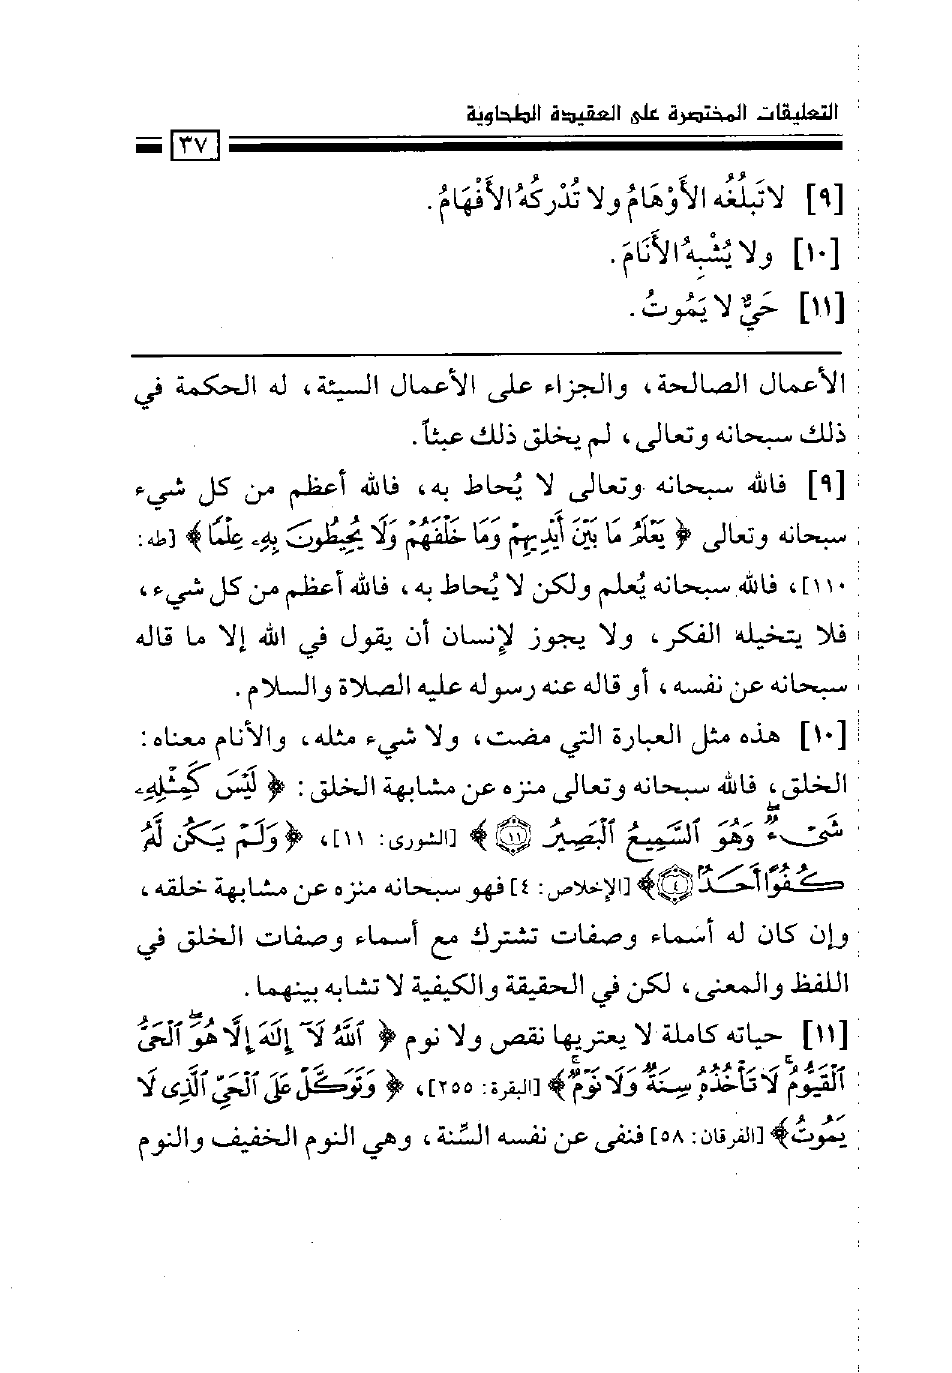 التعليقات المختصرة على العقيدة الطحاوية
٣٧
[٩] لا تَبلُغُه الأَوْهَامُ ولا تُدْركُهُ الأَفْهَامُ.
[١٠] ولا يُشْبِهُ الأَنَامَ.
[١١] حَيٌّ لا يَمُوتُ.
الأعمال الصالحة، والجزاء على الأعمال السيئة، له الحكمة في
ذلك سبحانه وتعالى، لم يخلق ذلك عبثاً.
[٩] فالله سبحانه وتعالى لا يُحاط به، فالله أعظم من كل شيء
سبحانه وتعالى ﴿ يَعْلَمُ مَا بَيْنَ أَيْدِيهِمْ وَمَا خَلْفَهُمْ وَلَا يُحِيطُونَ بِهِۦ عِلْمًا ﴾ [طه:
١١٠]، فالله سبحانه يُعلم ولكن لا يُحاط به، فالله أعظم من كل شيء،
فلا يتخيله الفكر، ولا يجوز لإنسان أن يقول في الله إلا ما قاله
سبحانه عن نفسه، أو قاله عنه رسوله عليه الصلاة والسلام.
[١٠] هذه مثل العبارة التي مضت، ولا شيء مثله، والأنام معناه:
الخلق، فالله سبحانه وتعالى منزه عن مشابهة الخلق: ﴿ لَيْسَ كَمِثْلِهِۦ
شَىْءٌ ۖ وَهُوَ ٱلسَّمِيعُ ٱلْبَصِيرُ ۝١١ ﴾ [الشورى: ١١]، ﴿ وَلَمْ يَكُن لَّهُۥ
كُفُوًا أَحَدٌۢ ۝٤ ﴾ [الإخلاص: ٤] فهو سبحانه منزه عن مشابهة خلقه،
وإن كان له أسماء وصفات تشترك مع أسماء وصفات الخلق في
اللفظ والمعنى، لكن في الحقيقة والكيفية لا تشابه بينهما.
[١١] حياته كاملة لا يعتريها نقص ولا نوم ﴿ ٱللَّهُ لَآ إِلَٰهَ إِلَّا هُوَ ۖ ٱلْحَىُّ
ٱلْقَيُّومُ ۚ لَا تَأْخُذُهُۥ سِنَةٌ وَلَا نَوْمٌ ۚ ﴾ [البقرة: ٢٥٥]، ﴿ وَتَوَكَّلْ عَلَى ٱلْحَىِّ ٱلَّذِى لَا
يَمُوتُ ﴾ [الفرقان: ٥٨] فنفى عن نفسه السِّنة، وهي النوم الخفيف والنوم